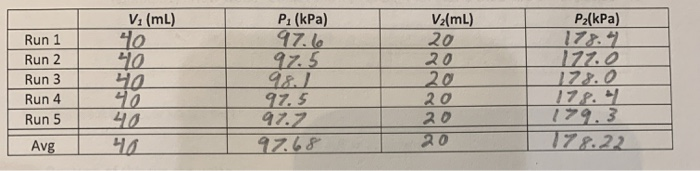 V₁ (mL) P₁ (kPa) V₂(mL) P₂(kPa)
Run 1 40 97.6 20 178.4
Run 2 40 97.5 20 177.0
Run 3 40 98.1 20 178.0
Run 4 40 97.5 20 178.4
Run 5 40 97.7 20 179.3
Avg 40 97.68 20 178.22